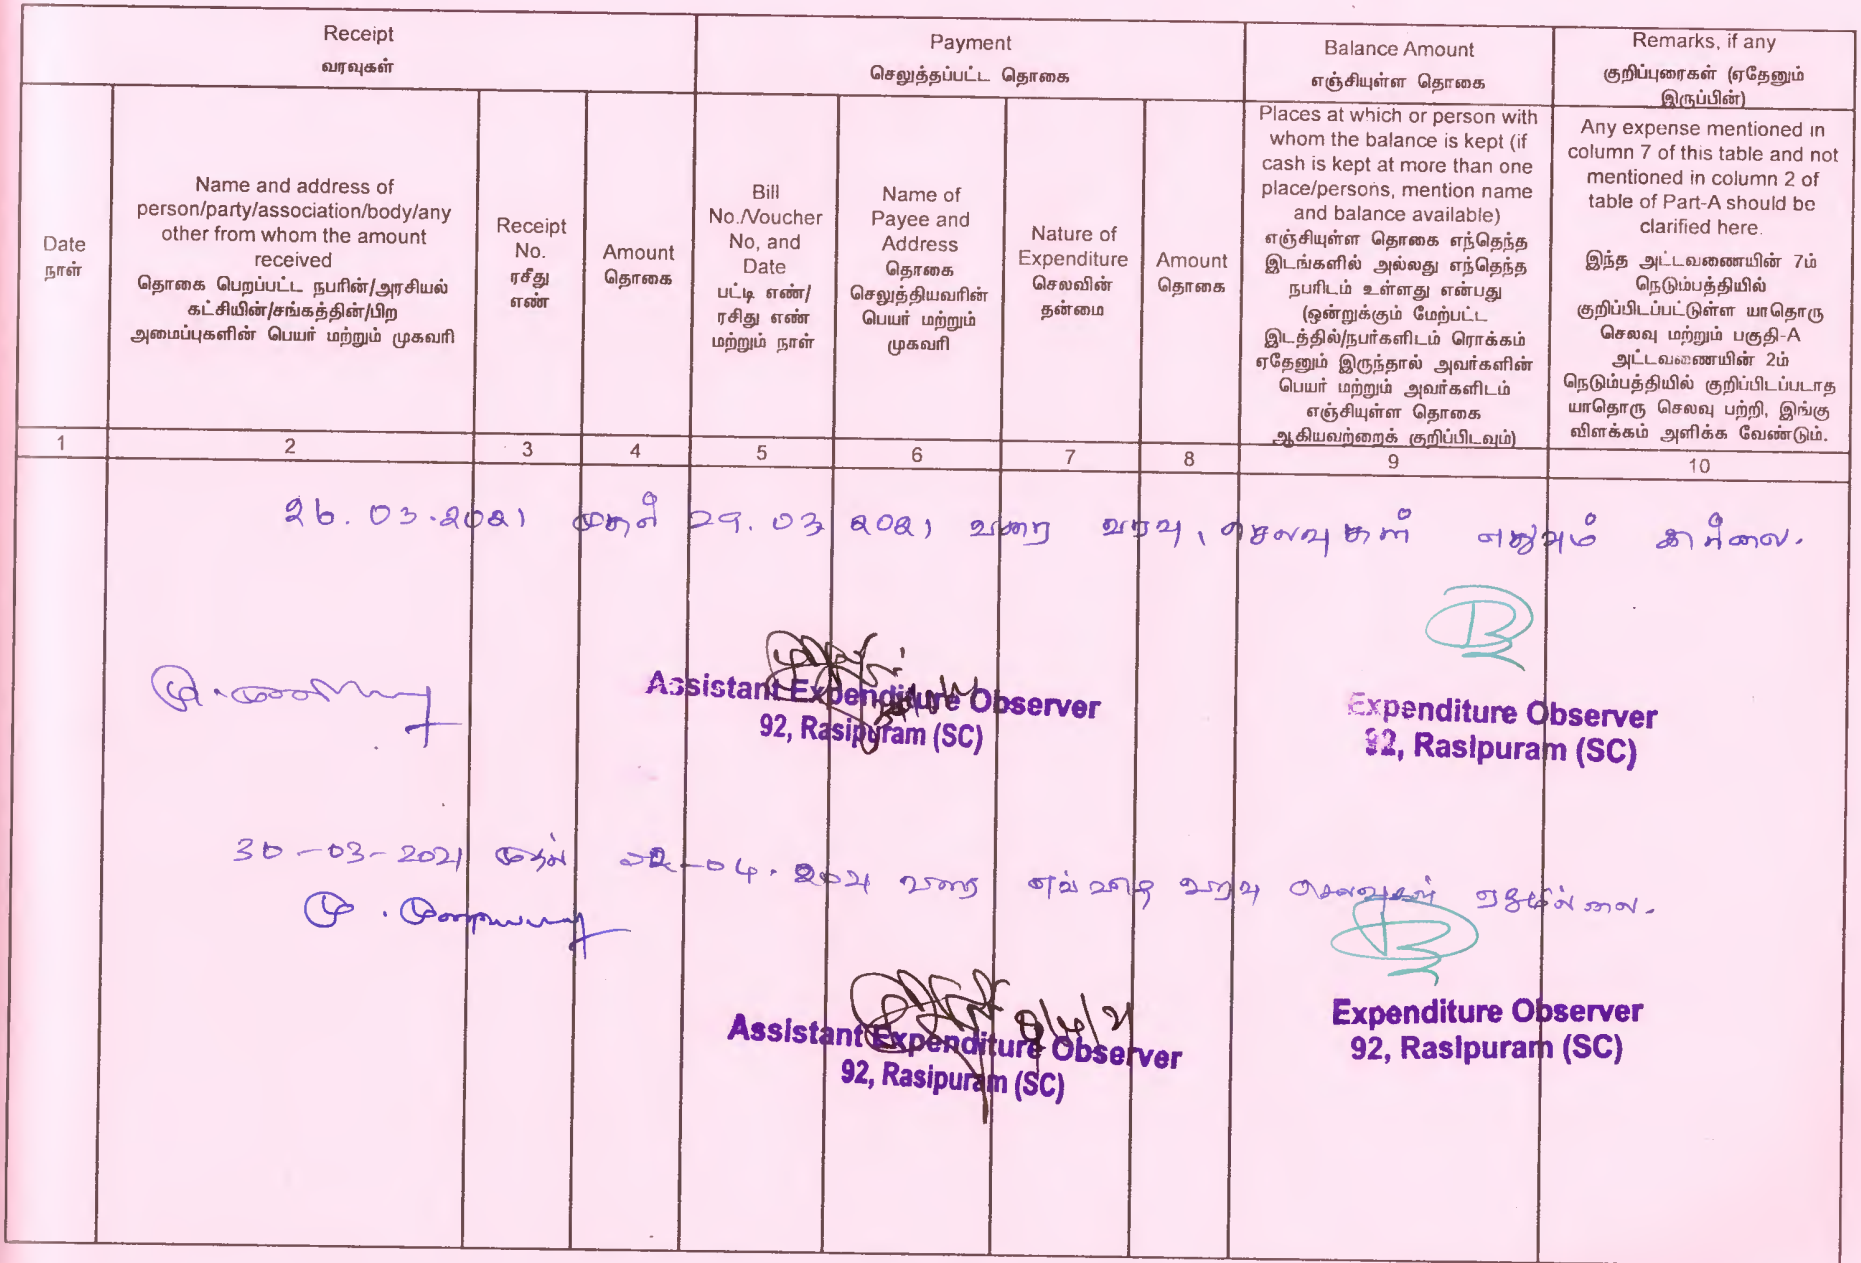 Receipt
வரவுகள்
Payment
செலுத்தப்பட்ட தொகை
Balance Amount
எஞ்சியுள்ள தொகை
Remarks, if any
குறிப்புரைகள் (ஏதேனும்
இருப்பின்)
Date
நாள்
Name and address of
person/party/association/body/any
other from whom the amount
received
தொகை பெறப்பட்ட நபரின்/அரசியல்
கட்சியின்/சங்கத்தின்/பிற
அமைப்புகளின் பெயர் மற்றும் முகவரி
Receipt
No.
ரசீது
எண்
Amount
தொகை
Bill
No./Voucher
No, and
Date
பட்டி எண்/
ரசிது எண்
மற்றும் நாள்
Name of
Payee and
Address
தொகை
செலுத்தியவரின்
பெயர் மற்றும்
முகவரி
Nature of
Expenditure
செலவின்
தன்மை
Amount
தொகை
Places at which or person with
whom the balance is kept (if
cash is kept at more than one
place/persons, mention name
and balance available)
எஞ்சியுள்ள தொகை எந்தெந்த
இடங்களில் அல்லது எந்தெந்த
நபரிடம் உள்ளது என்பது
(ஒன்றுக்கும் மேற்பட்ட
இடத்தில்/நபர்களிடம் ரொக்கம்
ஏதேனும் இருந்தால் அவர்களின்
பெயர் மற்றும் அவர்களிடம்
எஞ்சியுள்ள தொகை
ஆகியவற்றைக் குறிப்பிடவும்)
Any expense mentioned in
column 7 of this table and not
mentioned in column 2 of
table of Part-A should be
clarified here.
இந்த அட்டவணையின் 7ம்
நெடும்பத்தியில்
குறிப்பிடப்பட்டுள்ள யாதொரு
செலவு மற்றும் பகுதி-A
அட்டவணையின் 2ம்
நெடும்பத்தியில் குறிப்பிடப்படாத
யாதொரு செலவு பற்றி, இங்கு
விளக்கம் அளிக்க வேண்டும்.
1 2 3 4 5 6 7 8 9 10
26.03.2021 முதல் 29.03 2021 வரை வரவு, செலவுகள் எதுவும் இல்லை.
Assistant Expenditure Observer
92, Rasipuram (SC)
Expenditure Observer
92, Rasipuram (SC)
30-03-2021 முதல் 02-04.2021 வரை எவ்வித வரவு செலவுகள் ஏதுமில்லை.
Assistant Expenditure Observer
92, Rasipuram (SC)
Expenditure Observer
92, Rasipuram (SC)